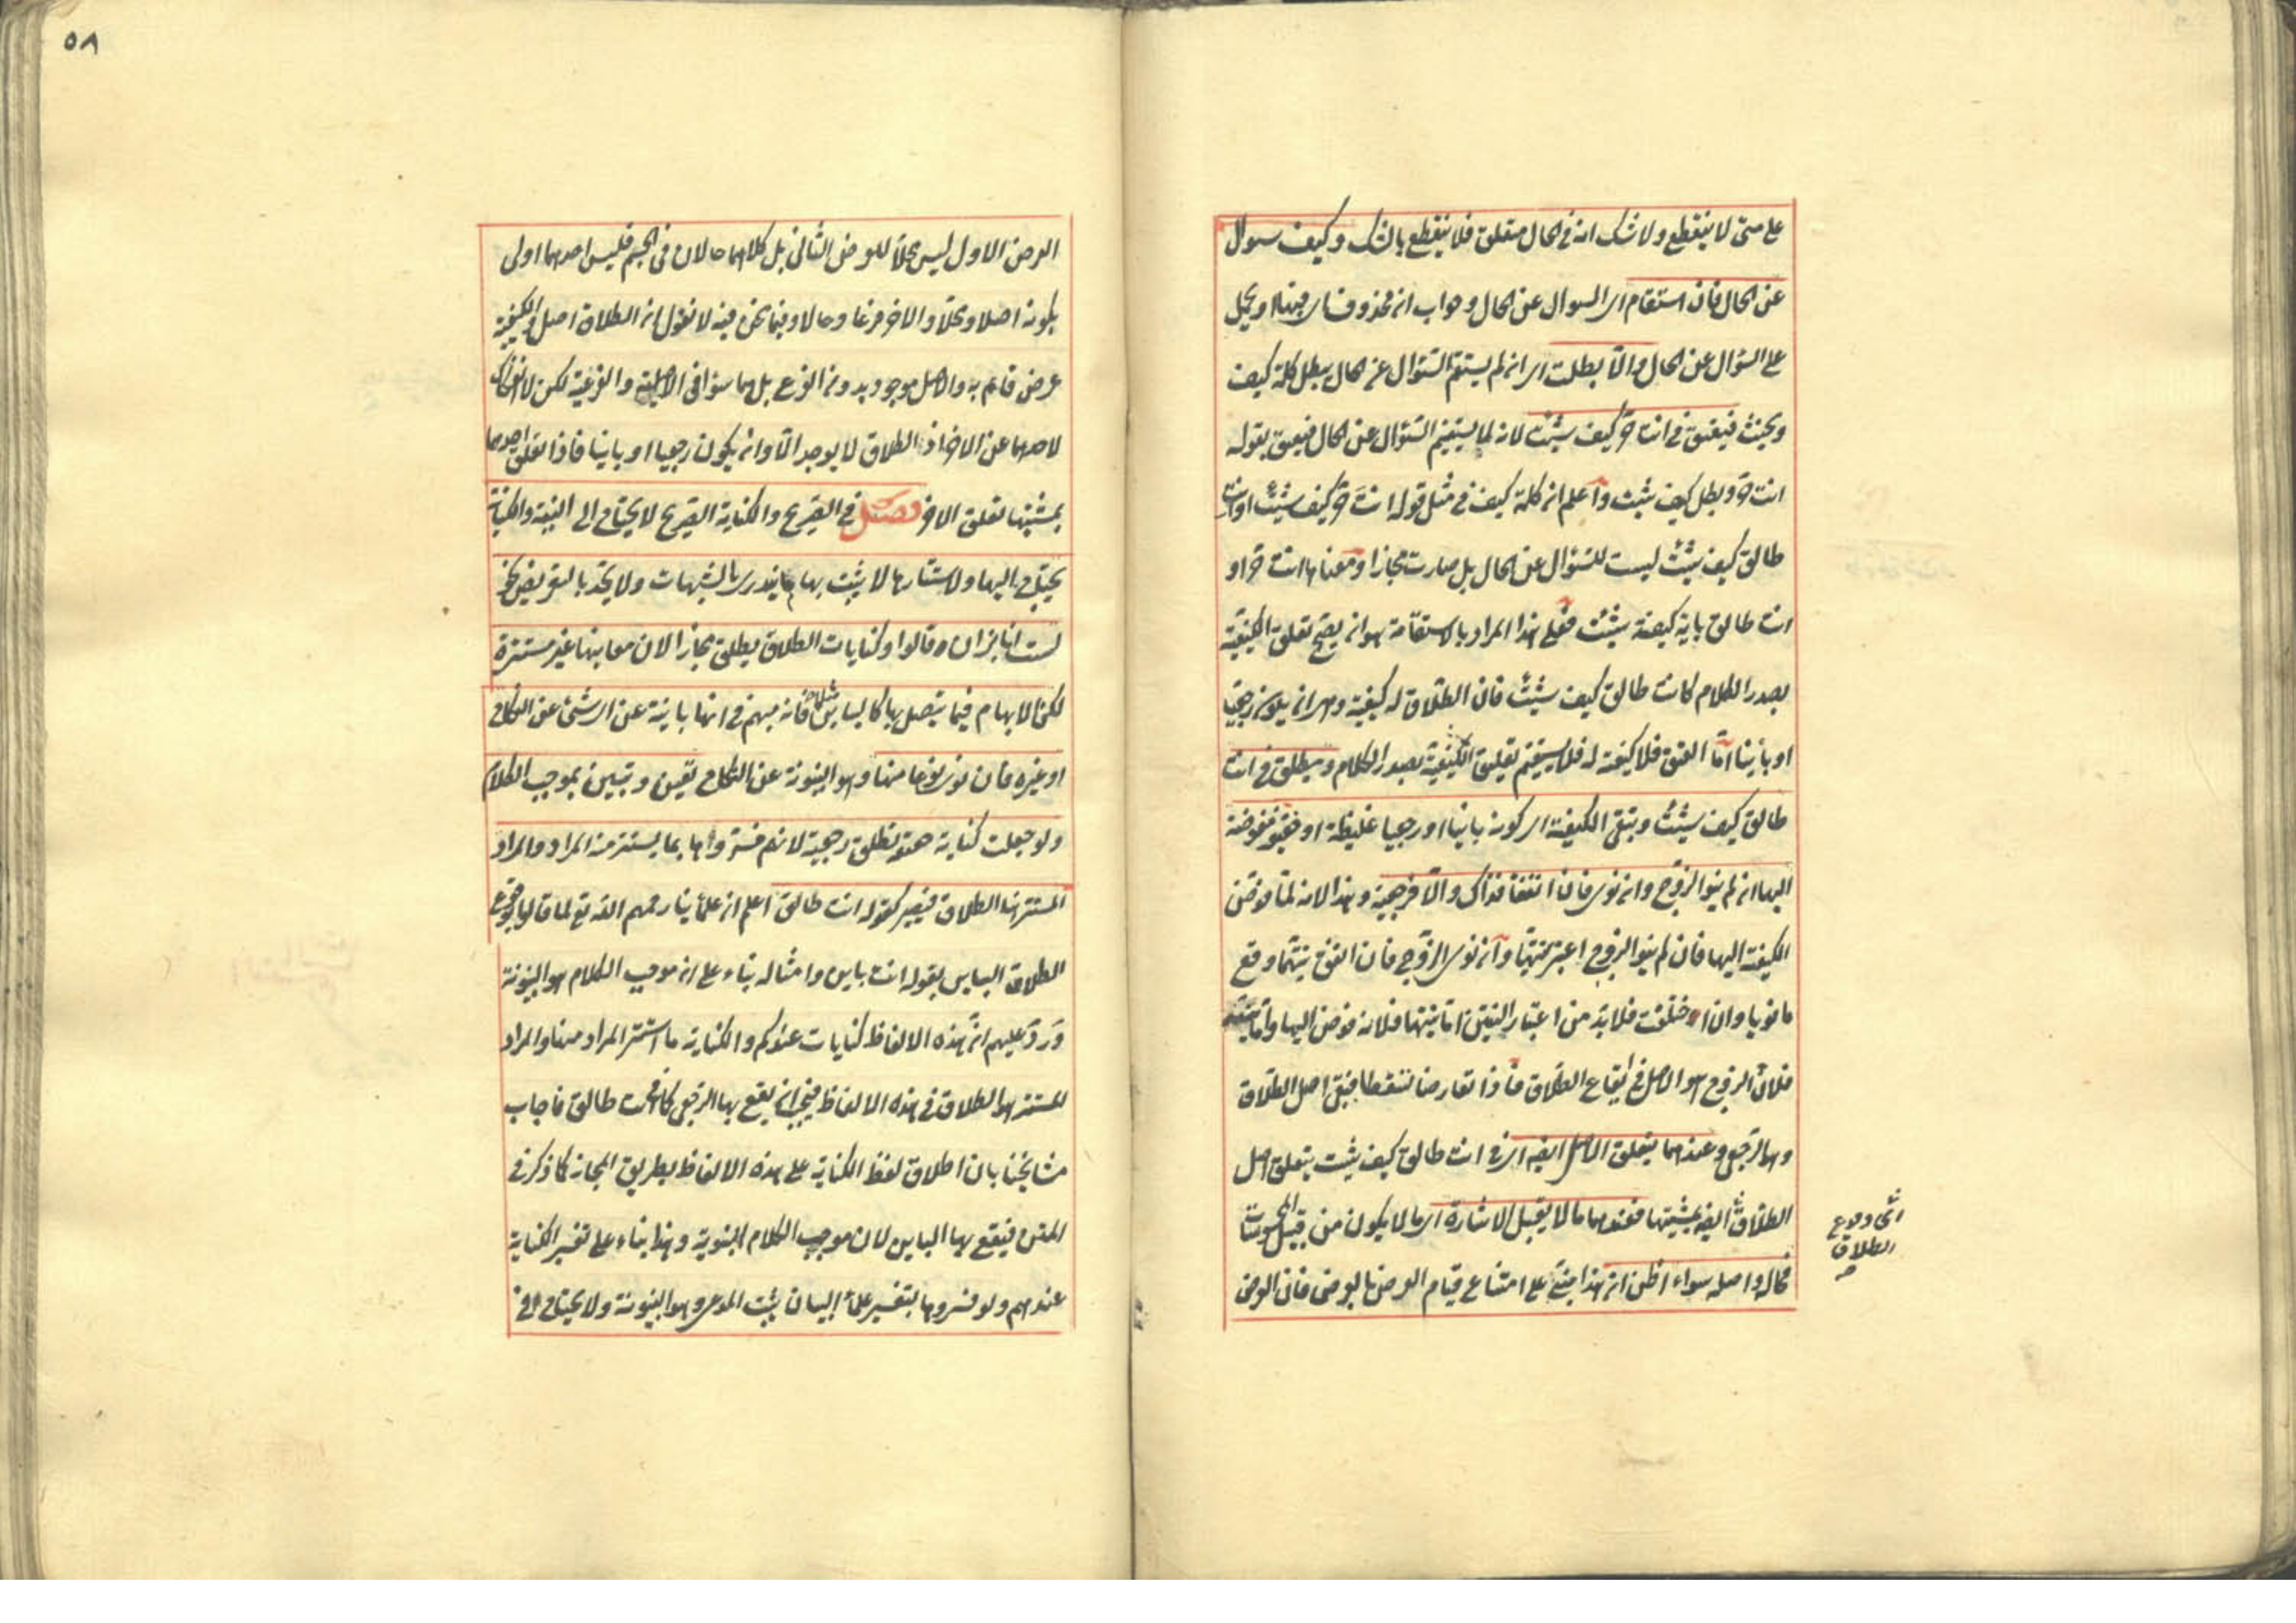 على متى لا ينقطع ولا شك انه في الحال متعلق فلا ينقطع بالشك وكيف سوال
عن الحال فان استقام اى السوال عن الحال وجواب ان محذوف اى فبها او يحمل
على السؤال عن الحال والا بطلت اى ان لم يستقم السؤال عن الحال يبطل كلمة كيف
ويحنث فيعتق في انت حر كيف شئت لانه لما يستقيم السؤال عن الحال فيعتق بقوله
انت حر وبطل كيف شئت واعلم ان كلمة كيف في مثل قوله انت حر كيف شئت او انت
طالق كيف شئت ليست للسؤال عن الحال بل صارت مجازا ومعناها انت حر او
انت طالق باية كيفية شئت فعلى هذا المراد بالاستقامة هو ان يصح تعلق الكيفية
بصدر الكلام كانت طالق كيف شئت فان الطلاق له كيفية وهى ان يكون رجعيا
او باينا اما العتق فلا كيفية له فلا يستقيم تعليق الكيفية بصدر الكلام ويطلق في انت
طالق كيف شئت وتبقى الكيفية اى كونه باينا او رجعيا غليظة او خفيفة مفوضة
اليها ان لم ينو الزوج وان نوى فان اتفقا فذاك والا فرجعية وهذا لانه لما فوض
الكيفية اليها فان لم ينو الزوج اعتبر نيتها وان نوى الزوج فان اتفق نيتهما وقع
ما نويا وان اختلفت فلا بد من اعتبار النيتين اما نيتها فلانه فوض اليها واما نيته
فلان الزوج هو الاصل في ايقاع الطلاق فاذا تعارضا تساقطا فبقى اصل الطلاق
وهو الرجعى وعندهما يتعلق الاصل ايضا اى في انت طالق كيف شئت يتعلق اصل
الطلاق ايضا بمشيتها فعندهما ما لا يقبل الاشارة اى ما لا يكون من قبيل المحسوسات
فحاله واصله سواء اظن ان هذا مبنى على امتناع قيام العرض بالعرض فان العرض
اى وقوع
الطلاق
صح
٥٨
العرض الاول ليس محلا للعرض الثانى بل كلاهما حالان في الجسم فليس احدهما اولى
بكونه اصلا ومحلا والاخر فرعا وحالا وفيما نحن فيه لا نقول ان الطلاق اصل والكيفية
عرض قائم به والاصل موجود بدون الفرع بل هما سوا في الاصلية والفرعية لكن لا انفكاك
لاحدهما عن الاخر اذ الطلاق لا يوجد الا وان يكون رجعيا او باينا فاذا تعلق احدهما
بمشيتها تعلق الاخر فصل في الصريح والكناية الصريح لا يحتاج الى النية والكناية
يحتاج اليها ولاستتارها لا يثبت بها ما يندرى بالشبهات ولا يحد بالتعريض نحو
لست انا بزان وقالوا وكنايات الطلاق يطلق مجازا لان معانيها غير مستترة
لكن الابهام فيما يتصل بها كالباين مثلا فانه مبهم في انها باينة عن اى شئ عن النكاح
او غيره فان نوى نوعا منها وهو البينونة عن النكاح تعين وتبين بموجب الكلام
ولو جعلت كناية حقيقة تطلق رجعية لانهم فسروها بما يستتر منه المراد والمراد
المستتر هنا الطلاق فيصير كقوله انت طالق اعلم ان علمأنا رحمهم الله تع لما قالوا بوقوع
الطلاق الباين بقوله انت باين وامثاله بناء على ان موجب الكلام هو البينونة
ورد عليهم ان هذه الالفاظ كنايات عندكم والكناية ما استتر المراد منها والمراد
المستتر هو الطلاق في هذه الالفاظ فيجب ان يقع بها الرجعى كما في انت طالق فاجاب
مشايخنا بان اطلاق لفظ الكناية على هذه الالفاظ بطريق المجاز كما ذكر في
المتن فيقع بها الباين لان موجب الكلام البينونة وهذا بناء على تفسير الكناية
عندهم ولو فسروها بتفسير علمأ البيان يثبت المدعى وهو البينونة ولا يحتاج في